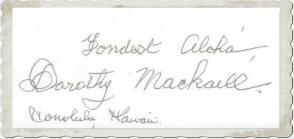 Fondest Aloha
Dorothy Mackaill.
Honolulu, Hawaii.